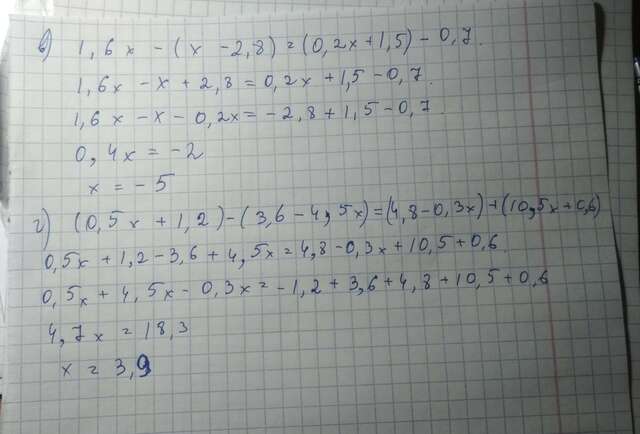 в) 1,6x - (x - 2,8) = (0,2x + 1,5) - 0,7.
1,6x - x + 2,8 = 0,2x + 1,5 - 0,7.
1,6x - x - 0,2x = -2,8 + 1,5 - 0,7
0,4x = -2
x = -5
г) (0,5x + 1,2) - (3,6 - 4,5x) = (4,8 - 0,3x) + (10,5x + 0,6)
0,5x + 1,2 - 3,6 + 4,5x = 4,8 - 0,3x + 10,5 + 0,6.
0,5x + 4,5x - 0,3x = -1,2 + 3,6 + 4,8 + 10,5 + 0,6
4,7x = 18,3
x = 3,9